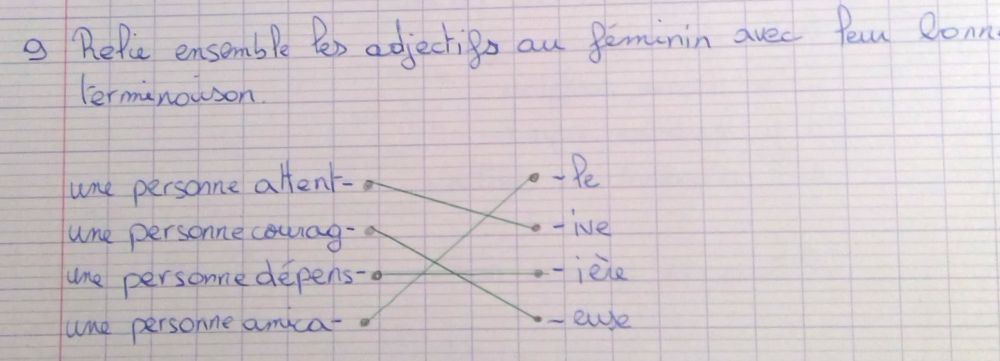 9 Relie ensemble les adjectifs au féminin avec leur bonne
terminaison.
une personne attent- -le
une personne courag- -ive
une personne dépens- -ière
une personne amica- -euse